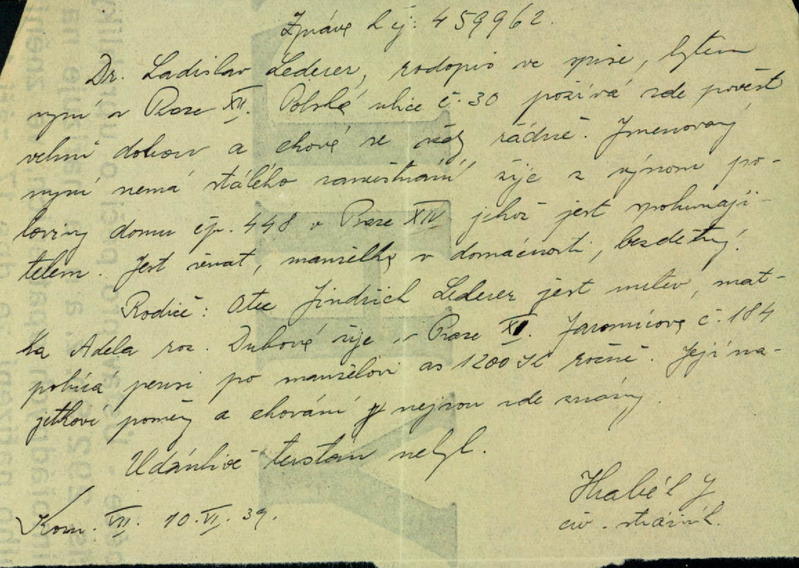 Zpráva k čj: 459962.
Dr. Ladislav Lederer, rodopis ve spise, bytem
nyní v Praze XII. Polská ulice č. 30 požívá zde pověst
velmi dobrou a chová se vždy řádně. Jmenovaný
nyní nemá stálého zaměstnání žije z výnosu po-
loviny domu čp. 448 v Praze XIV jehož jest spolumaji-
telem. Jest ženat, manželka v domácnosti, bezdětný.
Rodiče: Otec Jindřich Lederer jest mrtev, mat-
ka Adela roz. Dubová žije v Praze Jaromírova č. 184
pobírá pensi po manželovi as 1200 K ročně. Její ma-
jetkové poměry a chování nejsou zde známy.
Udánlivě trestán nebyl.
Kom. VII. 10. VI. 39.
Hraběk J
civ. strážník.